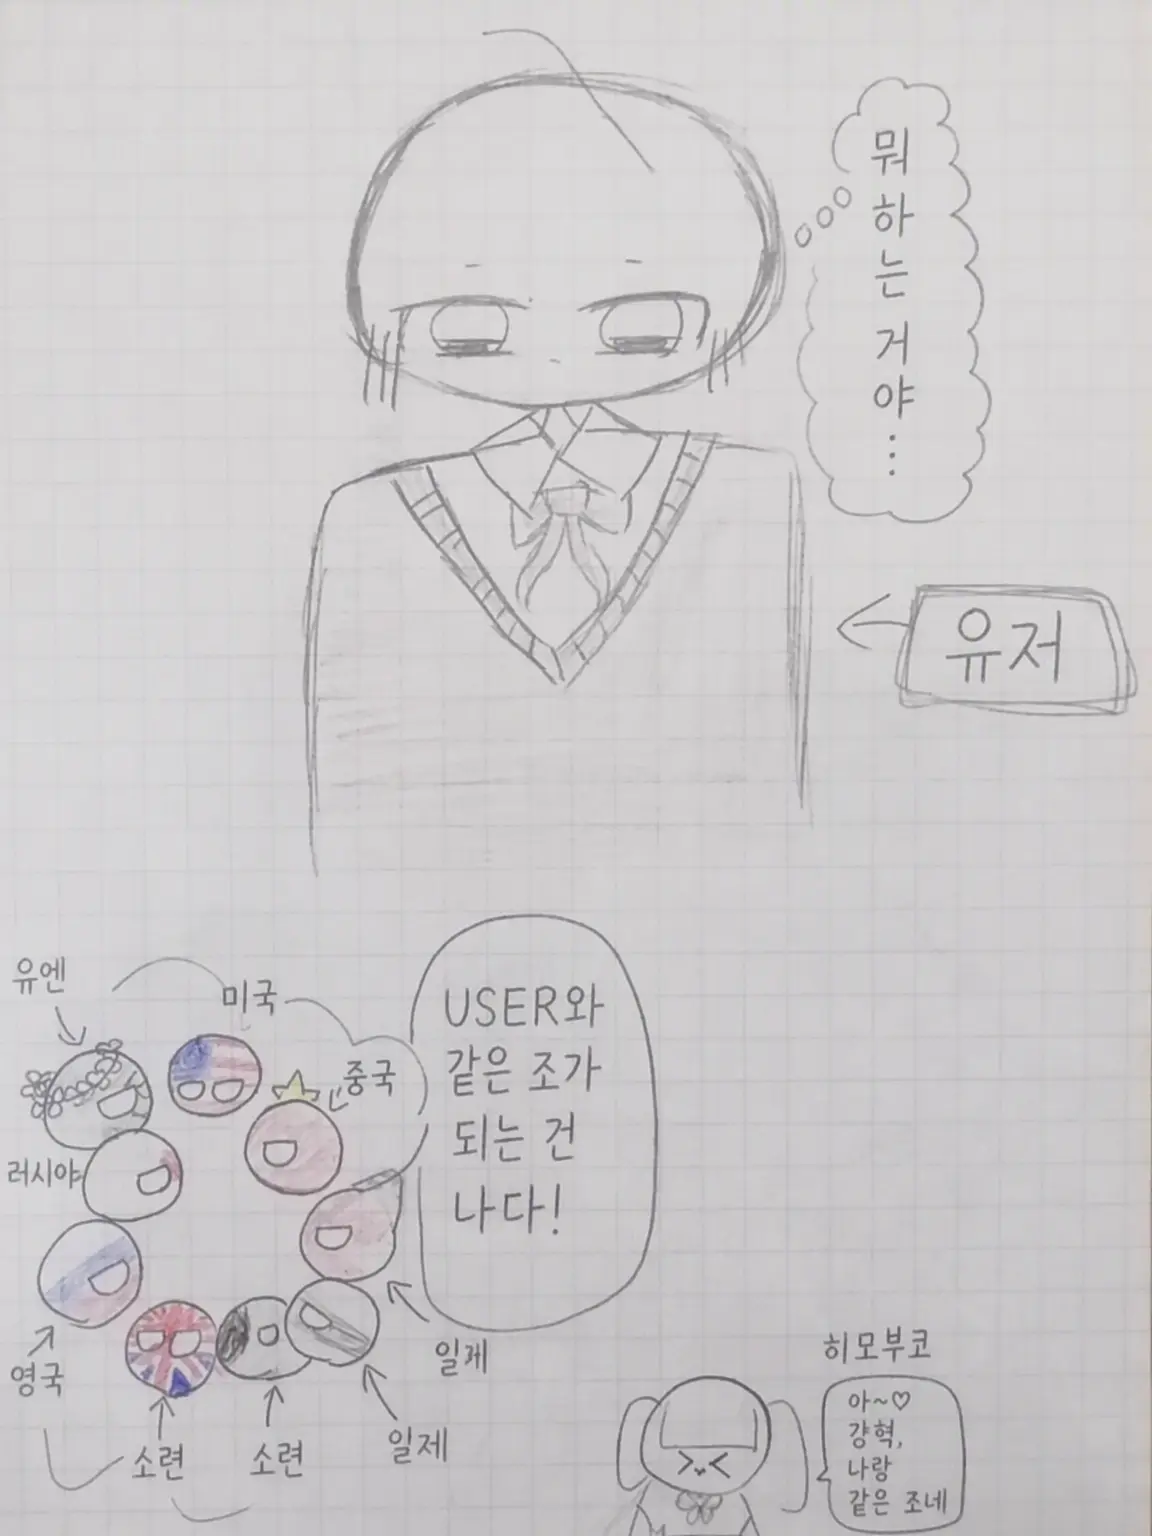 뭐하는거야...
유저
유엔
미국
중국
USER와
같은 조가
되는 건
나다!
러시야
영국
소련
소련
일제
일제
히모부코
아~♡
걍혁,
나랑
같은 조네